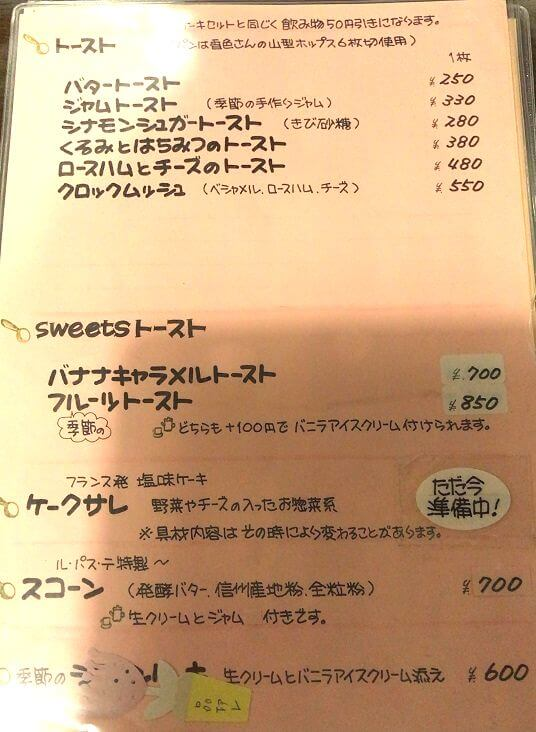 ーキセットと同じく飲み物50円引きになります。
トースト (パンは音色さんの山型ホップス6枚切使用)
1枚
バタートースト ¥250
ジャムトースト (季節の手作りジャム) ¥330
シナモンシュガートースト (きび砂糖) ¥280
くるみとはちみつのトースト ¥380
ロースハムとチーズのトースト ¥480
クロックムッシュ (ベシャメル、ロースハム、チーズ) ¥550
sweetsトースト
バナナキャラメルトースト ¥700
フルーツトースト ¥850
季節の どちらも+100円でバニラアイスクリーム付けられます。
フランス発 塩味ケーキ
ケークサレ 野菜やチーズの入ったお惣菜系
ただ今準備中!
※具材内容はその時により変わることがあります。
ル・パス・テ特製〜
スコーン (発酵バター、信州産地粉、全粒粉) ¥700
生クリームとジャム 付きです。
季節の 生クリームとバニラアイスクリーム添え ¥600